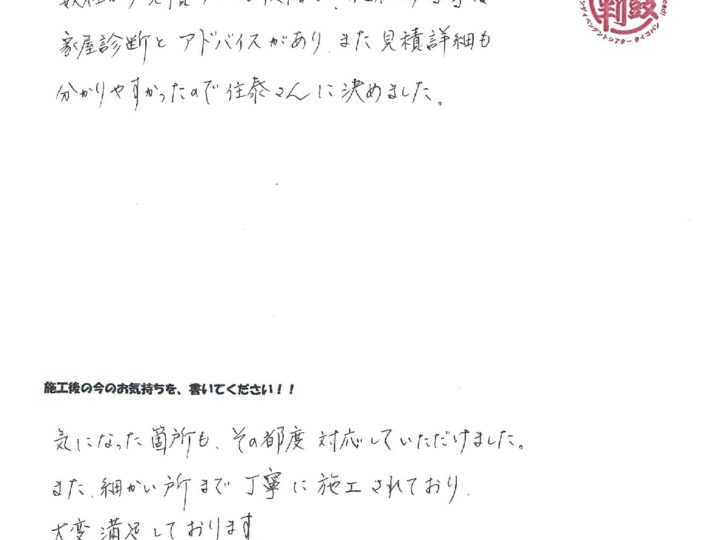 家屋診断とアドバイスがあり、また見積詳細も
分かりやすかったので住泰さんに決めました。
判鼓
インディペンデントシアター タイコバン
施工後の今のお気持ちを、書いてください！！
気になった箇所も、その都度対応していただけました。
また、細かい所まで丁寧に施工されており、
大変満足しております